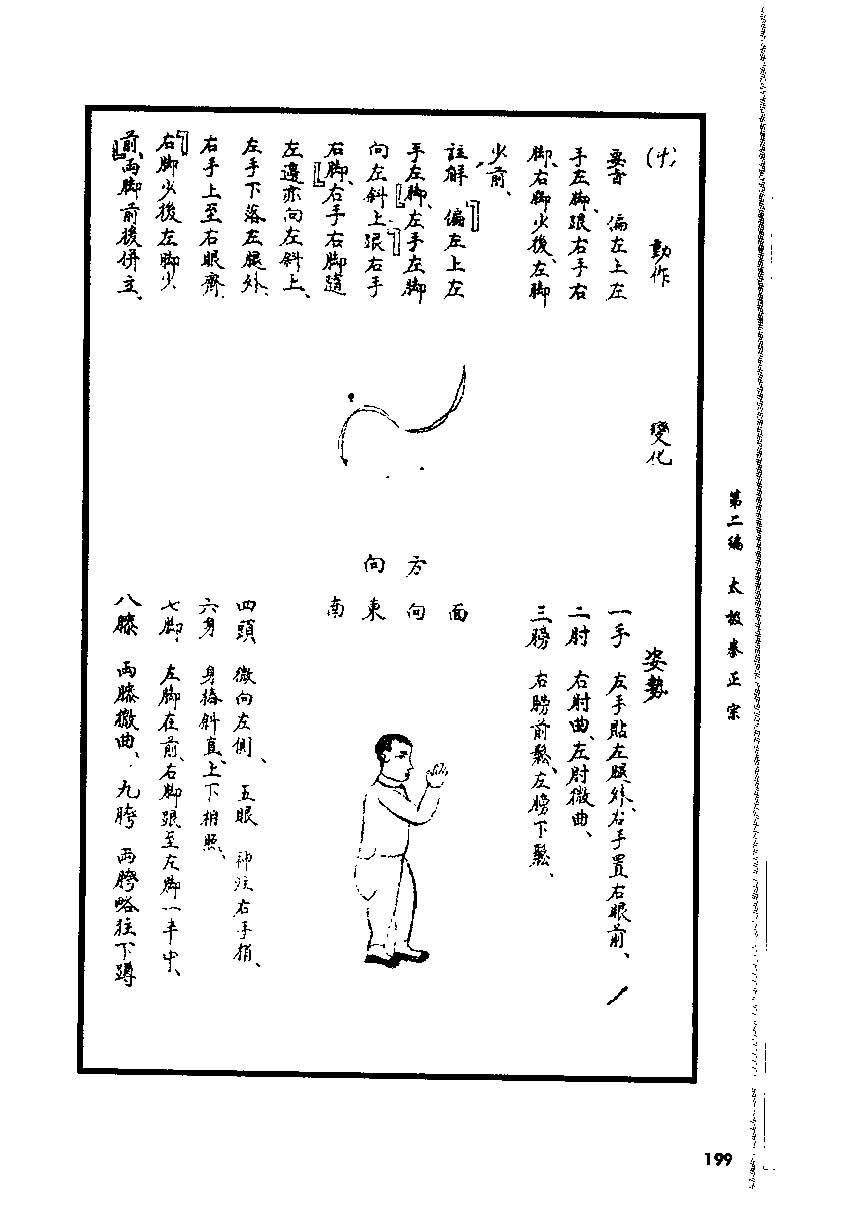 (十) 動作 變化 姿勢
要言 偏左上左
手左脚、跟右手右
脚、右脚少後、左脚
少前、
註解 「偏左上左
手左脚、」左手左脚
向左斜上、「跟右手
右脚、」右手右脚隨
左邊亦向左斜上、
左手下落左腿外、
右手上至右眼齊、
「右脚少後左脚少
前、」兩脚前後併立、
方向
面向東南
一手 左手貼左腿外、右手置右眼前、
二肘 右肘曲、左肘微曲、
三膀 右膀前鬆、左膀下鬆、
四頭 微向左側、 五眼 神注右手梢、
六身 身椿斜直、上下相照、
七脚 左脚在前、右脚跟至左脚一半中、
八膝 兩膝微曲、 九胯 兩胯略往下蹲
第二編 太极拳正宗
199